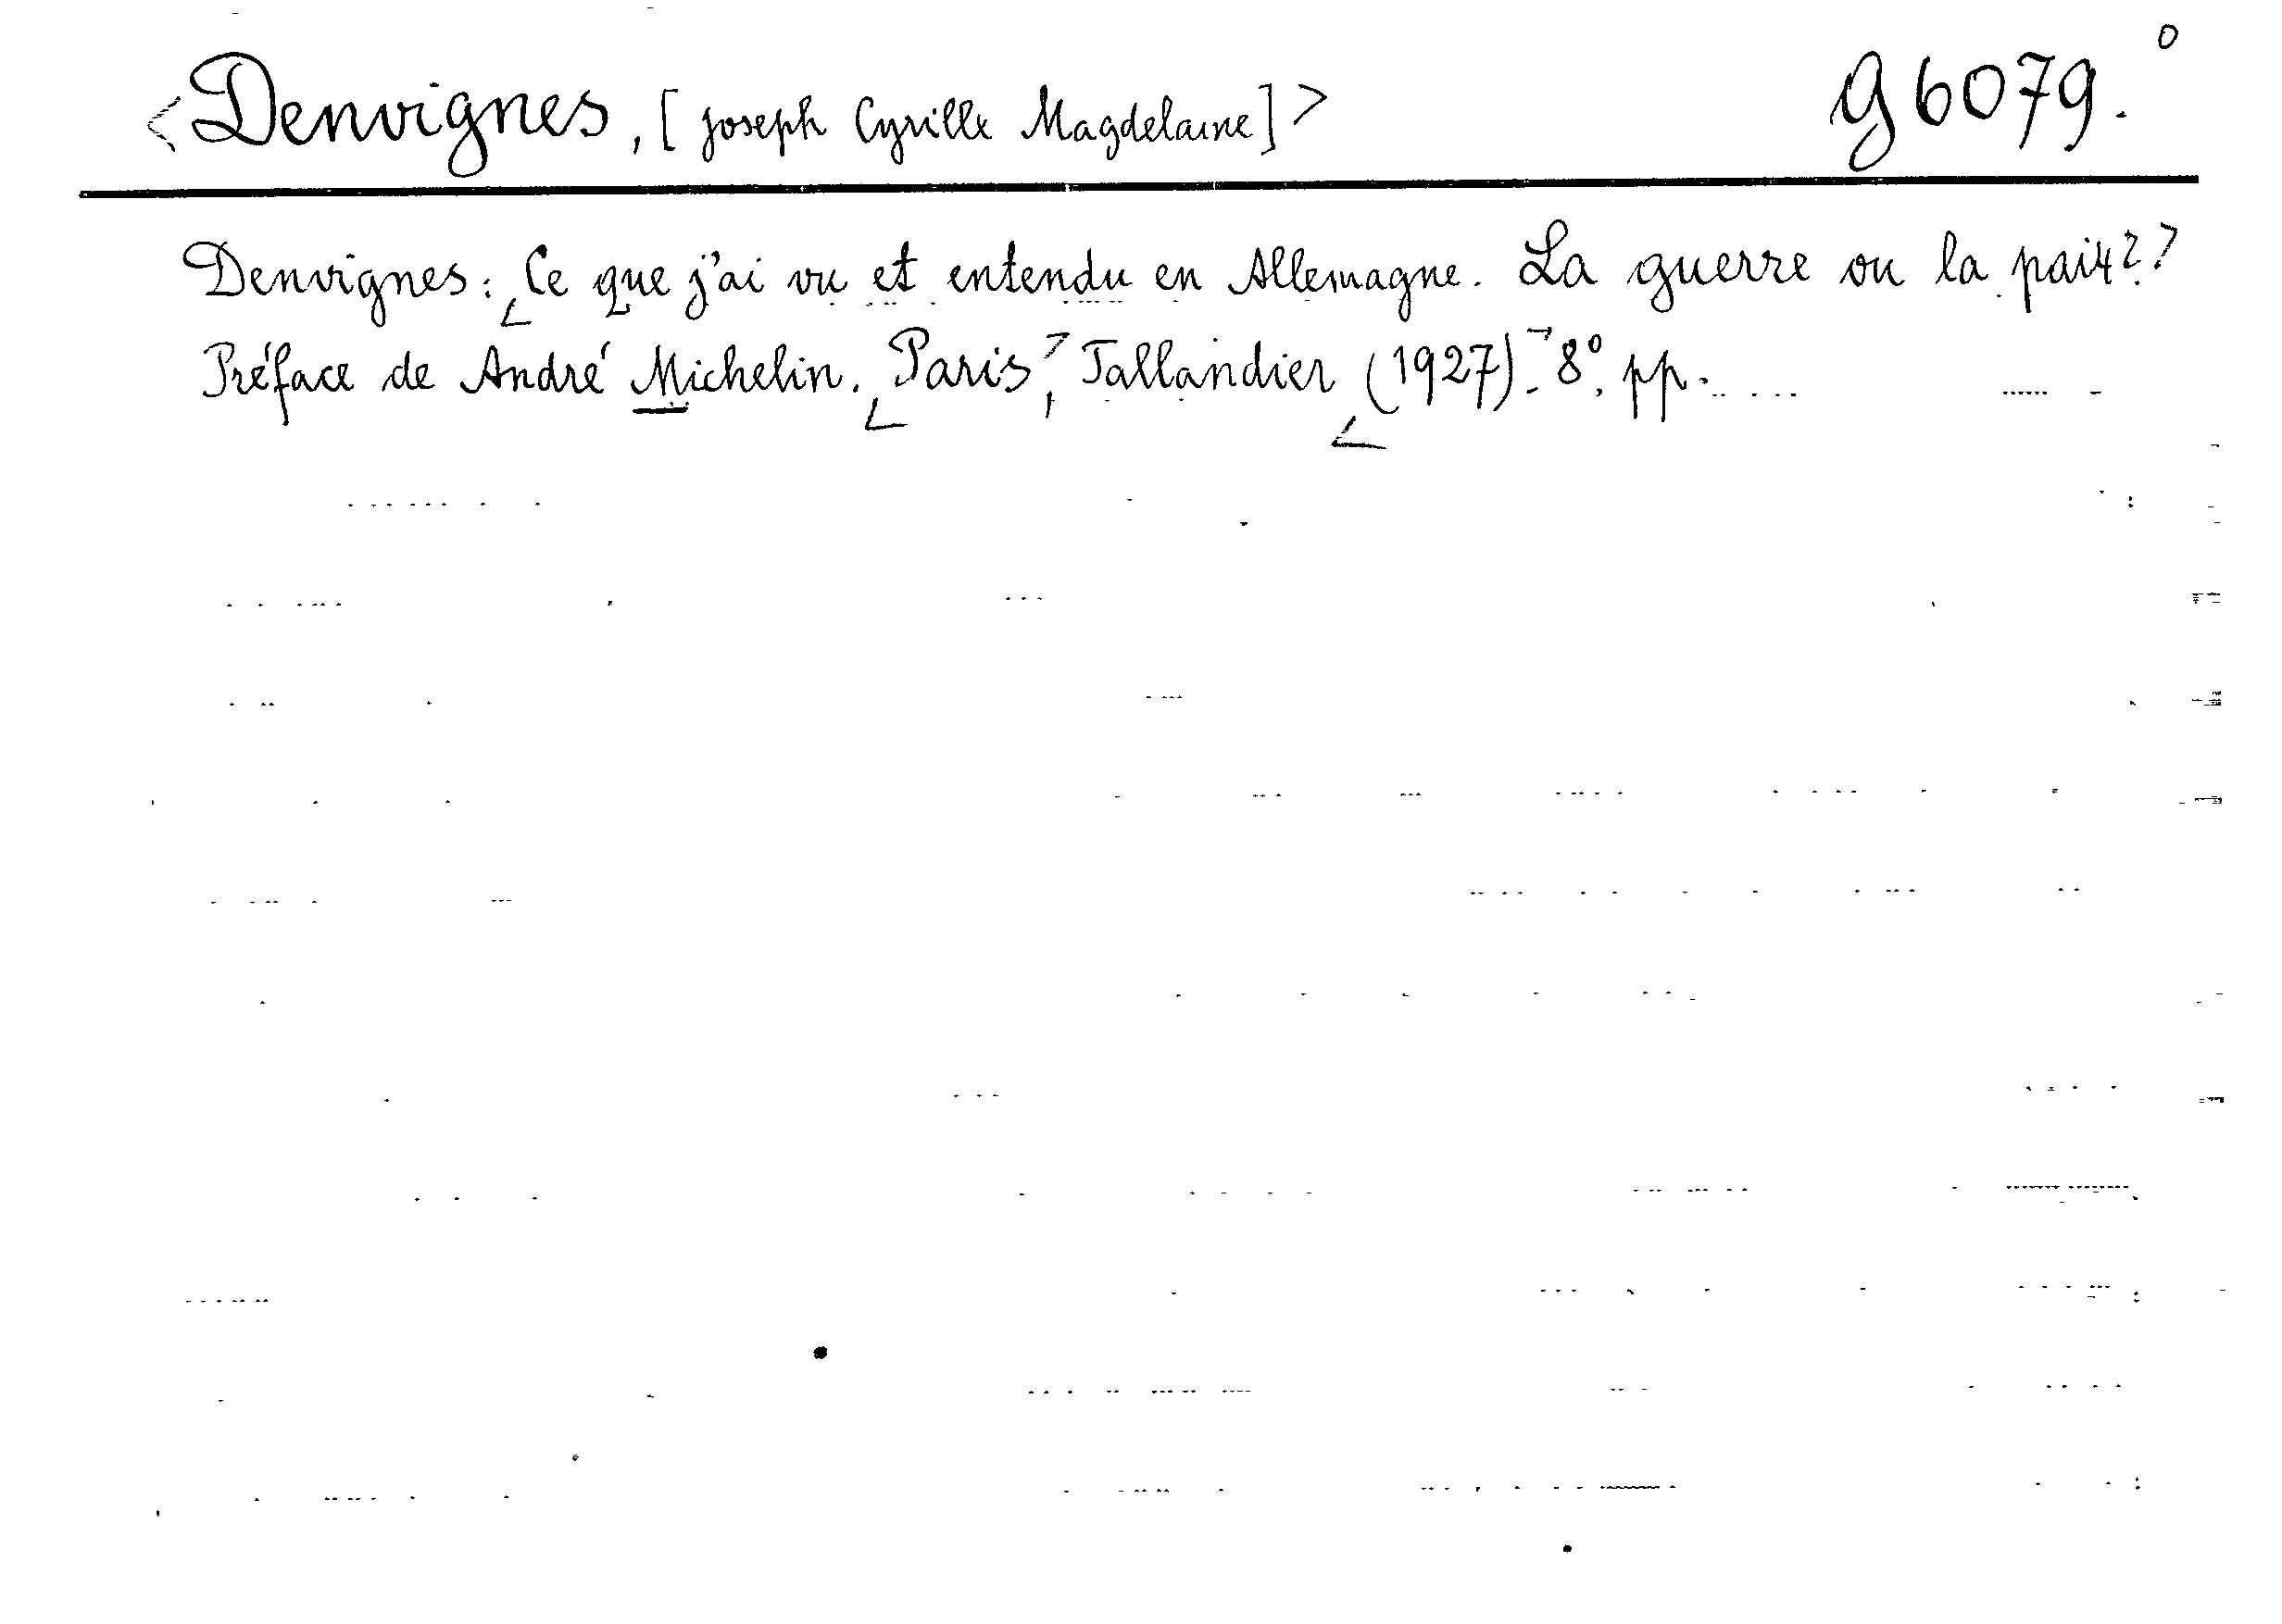 <Denvignes, [Joseph Cyrille Magdelaine]> g 6079.°
Denvignes: <Ce que j'ai vu et entendu en Allemagne. La guerre ou la paix?>
Préface de André Michelin. <Paris>, Tallandier <(1927).> 8°. pp.